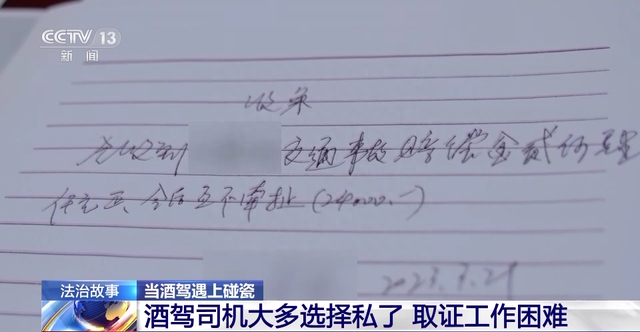 CCTV 13
新闻
收条
今收到 交通事故赔偿金贰仟
仟元正、今后互不牵扯(24000.-)
2023.3.21
法治故事 当酒驾遇上碰瓷
酒驾司机大多选择私了 取证工作困难